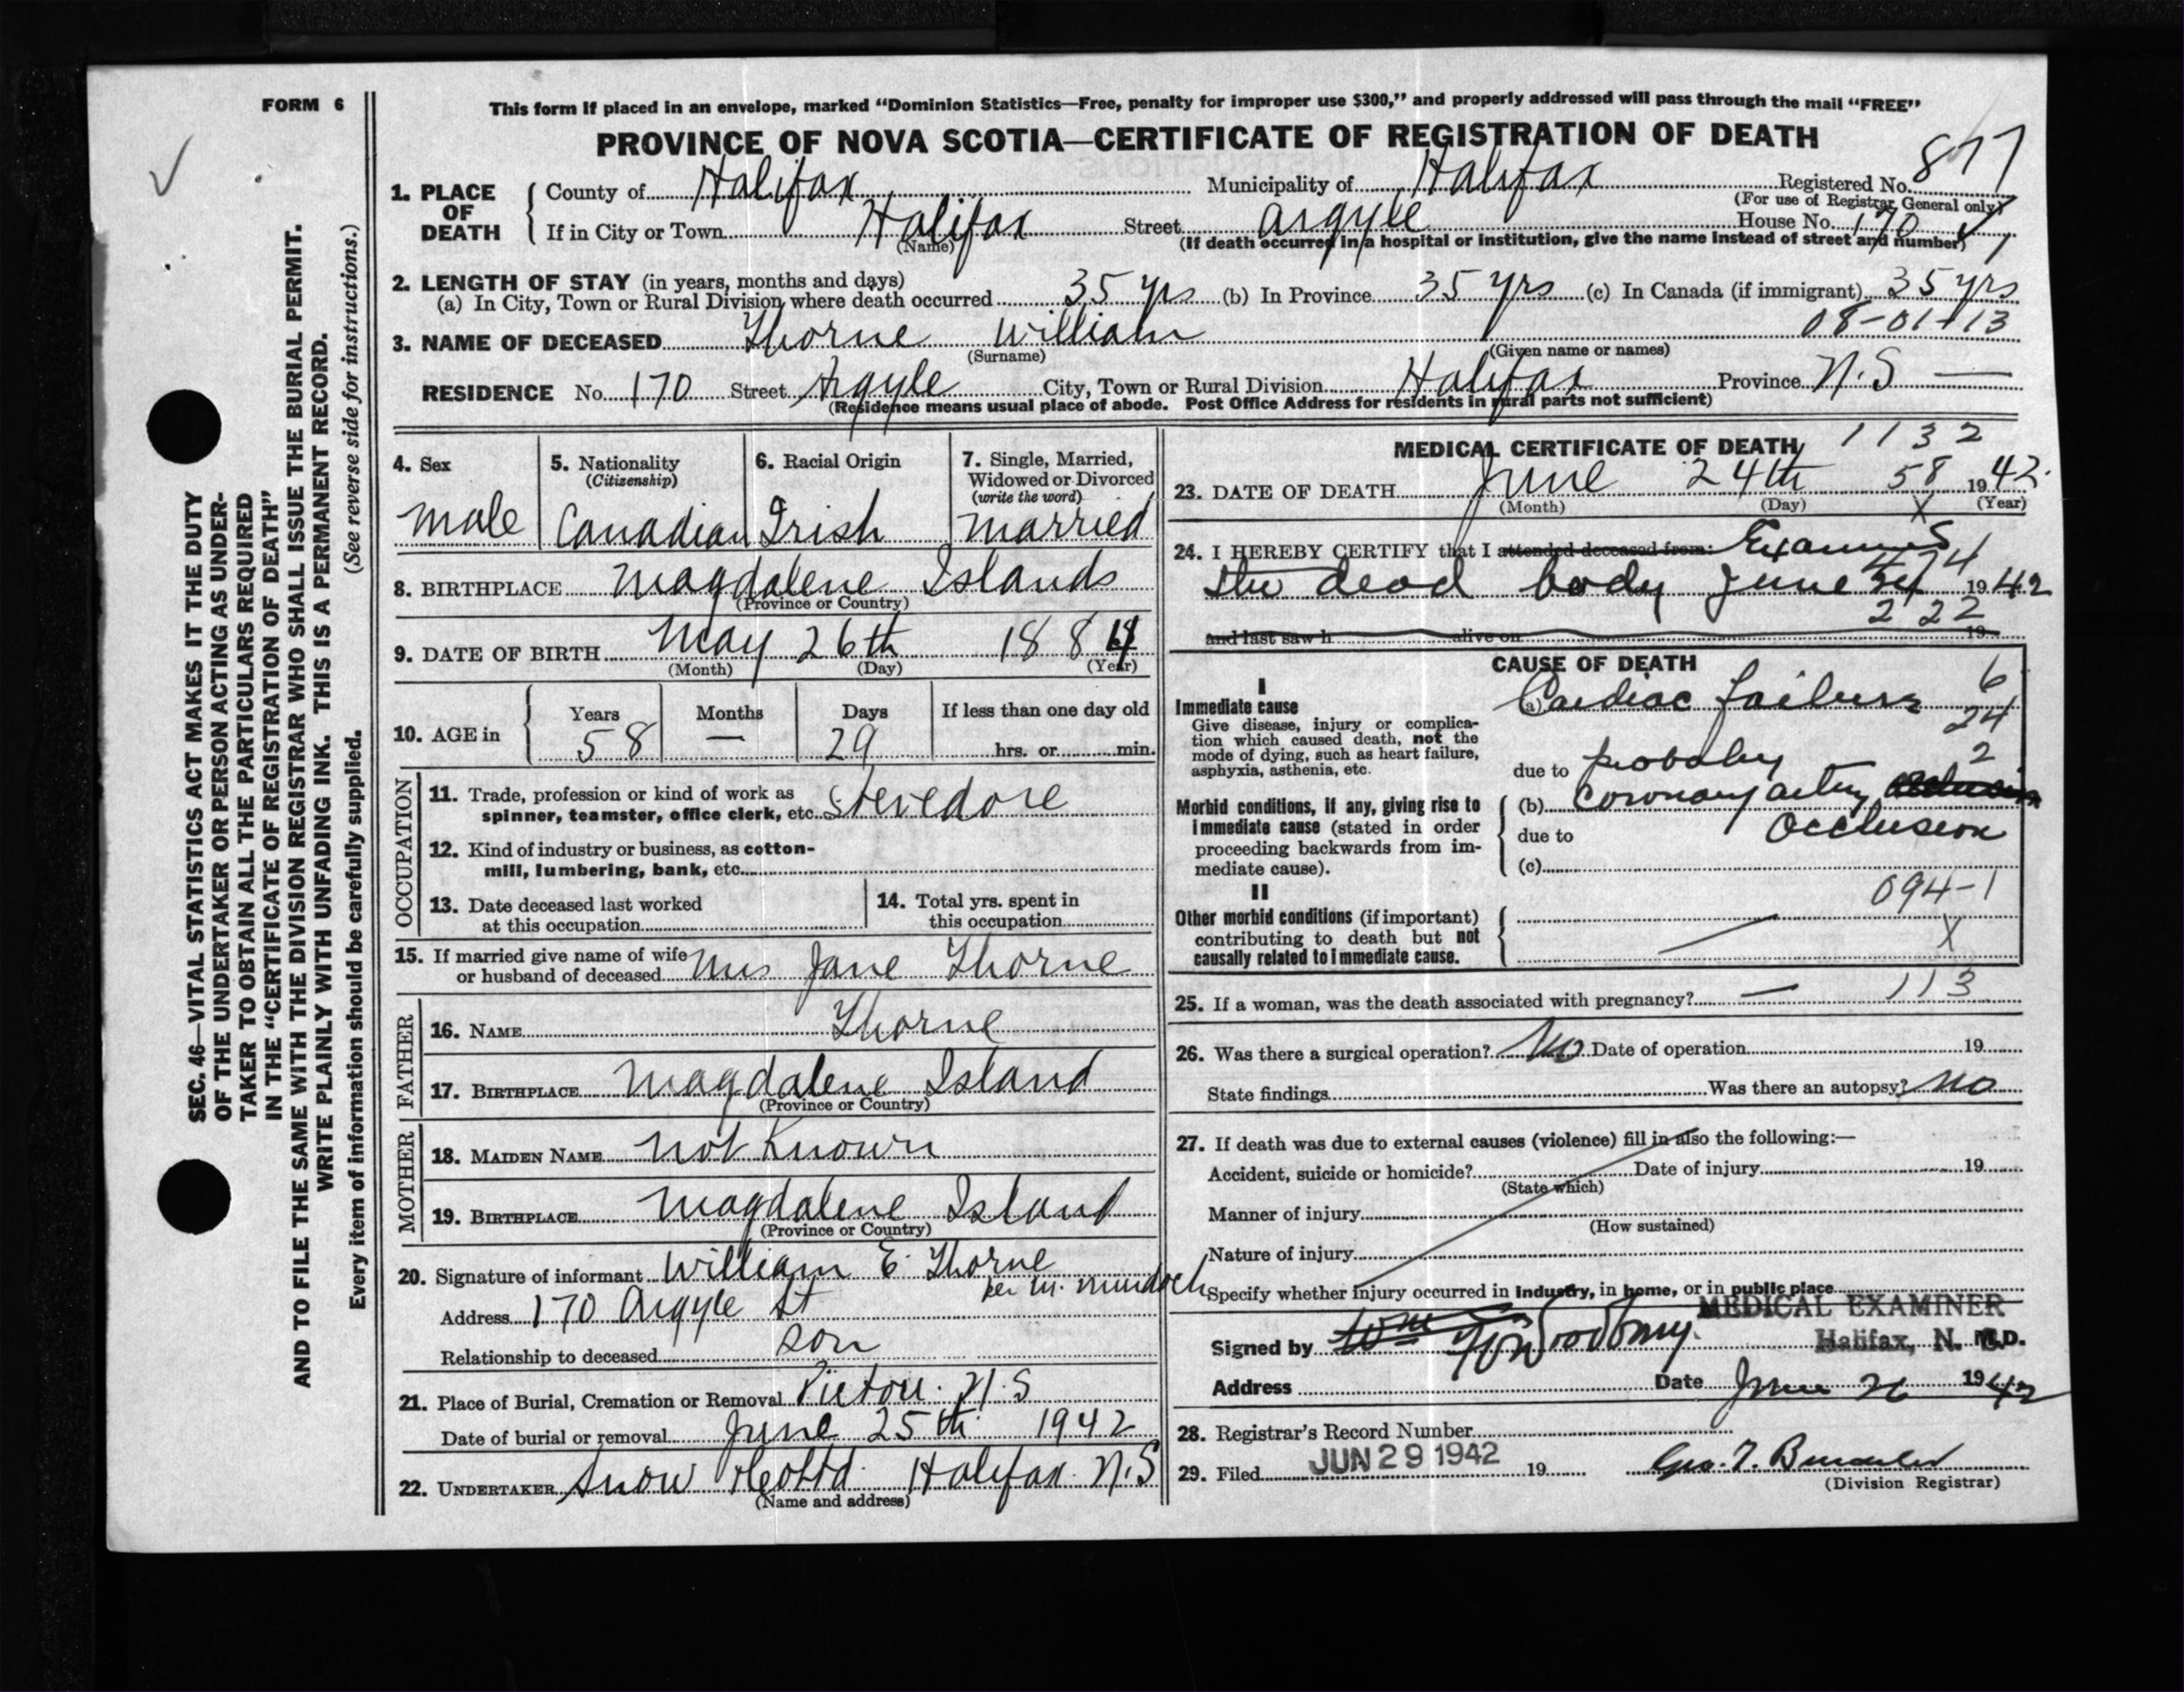 FORM 6
This form if placed in an envelope, marked “Dominion Statistics—Free, penalty for improper use $300,” and properly addressed will pass through the mail “FREE”
PROVINCE OF NOVA SCOTIA—CERTIFICATE OF REGISTRATION OF DEATH
877
1. PLACE OF DEATH
County of Halifax Municipality of Halifax Registered No.
(For use of Registrar General only)
If in City or Town Halifax Street Argyle House No. 170
(Name) (If death occurred in a hospital or institution, give the name instead of street and number)
2. LENGTH OF STAY (in years, months and days)
(a) In City, Town or Rural Division where death occurred 35 yrs (b) In Province 35 yrs (c) In Canada (if immigrant) 35 yrs
08-01-13
3. NAME OF DECEASED Thorne William
(Surname) (Given name or names)
RESIDENCE No. 170 Street Argyle City, Town or Rural Division Halifax Province N.S —
(Residence means usual place of abode. Post Office Address for residents in rural parts not sufficient)
4. Sex
male
5. Nationality
(Citizenship)
Canadian
6. Racial Origin
Irish
7. Single, Married,
Widowed or Divorced
(write the word)
married
8. BIRTHPLACE Magdalene Islands
(Province or Country)
9. DATE OF BIRTH May 26th 1884
(Month) (Day) (Year)
10. AGE in
Years Months Days If less than one day old
58 — 29 hrs. or min.
OCCUPATION
11. Trade, profession or kind of work as
spinner, teamster, office clerk, etc. Stevedore
12. Kind of industry or business, as cotton-
mill, lumbering, bank, etc.
13. Date deceased last worked
at this occupation
14. Total yrs. spent in
this occupation
15. If married give name of wife
or husband of deceased Mrs Jane Thorne
FATHER
16. NAME Thorne
17. BIRTHPLACE Magdalene Island
(Province or Country)
MOTHER
18. MAIDEN NAME not Known
19. BIRTHPLACE Magdalene Island
(Province or Country)
20. Signature of informant William E. Thorne
per M. Murdoch
Address 170 Argyle St
Relationship to deceased son
21. Place of Burial, Cremation or Removal Pictou. N.S
Date of burial or removal June 25th 1942
22. UNDERTAKER Snow Co Ltd. Halifax N.S
(Name and address)
MEDICAL CERTIFICATE OF DEATH 1132
23. DATE OF DEATH June 24th 58 1942.
(Month) (Day) X (Year)
24. I HEREBY CERTIFY that I attended deceased from: Examined
the dead body June 24 1942
222
and last saw h alive on 19
CAUSE OF DEATH
I
Immediate cause
Give disease, injury or complica-
tion which caused death, not the
mode of dying, such as heart failure,
asphyxia, asthenia, etc.
(a) Cardiac failure 6
24
2
due to probably
Morbid conditions, if any, giving rise to
immediate cause (stated in order
proceeding backwards from im-
mediate cause).
(b) Coronary artery
due to Occlusion
(c)
094-1
II
Other morbid conditions (if important)
contributing to death but not
causally related to immediate cause.
X
25. If a woman, was the death associated with pregnancy? — 113
26. Was there a surgical operation? No Date of operation 19
State findings Was there an autopsy? No
27. If death was due to external causes (violence) fill in also the following:—
Accident, suicide or homicide? Date of injury 19
(State which)
Manner of injury
(How sustained)
Nature of injury
Specify whether injury occurred in Industry, in home, or in public place
MEDICAL EXAMINER
Signed by Halifax, N. S. M.D.
Address Date June 26 1942
28. Registrar's Record Number
29. Filed JUN 29 1942 19
(Division Registrar)
SEC. 46—VITAL STATISTICS ACT MAKES IT THE DUTY
OF THE UNDERTAKER OR PERSON ACTING AS UNDER-
TAKER TO OBTAIN ALL THE PARTICULARS REQUIRED
IN THE “CERTIFICATE OF REGISTRATION OF DEATH”
AND TO FILE THE SAME WITH THE DIVISION REGISTRAR WHO SHALL ISSUE THE BURIAL PERMIT.
WRITE PLAINLY WITH UNFADING INK. THIS IS A PERMANENT RECORD.
(See reverse side for instructions.)
Every item of information should be carefully supplied.